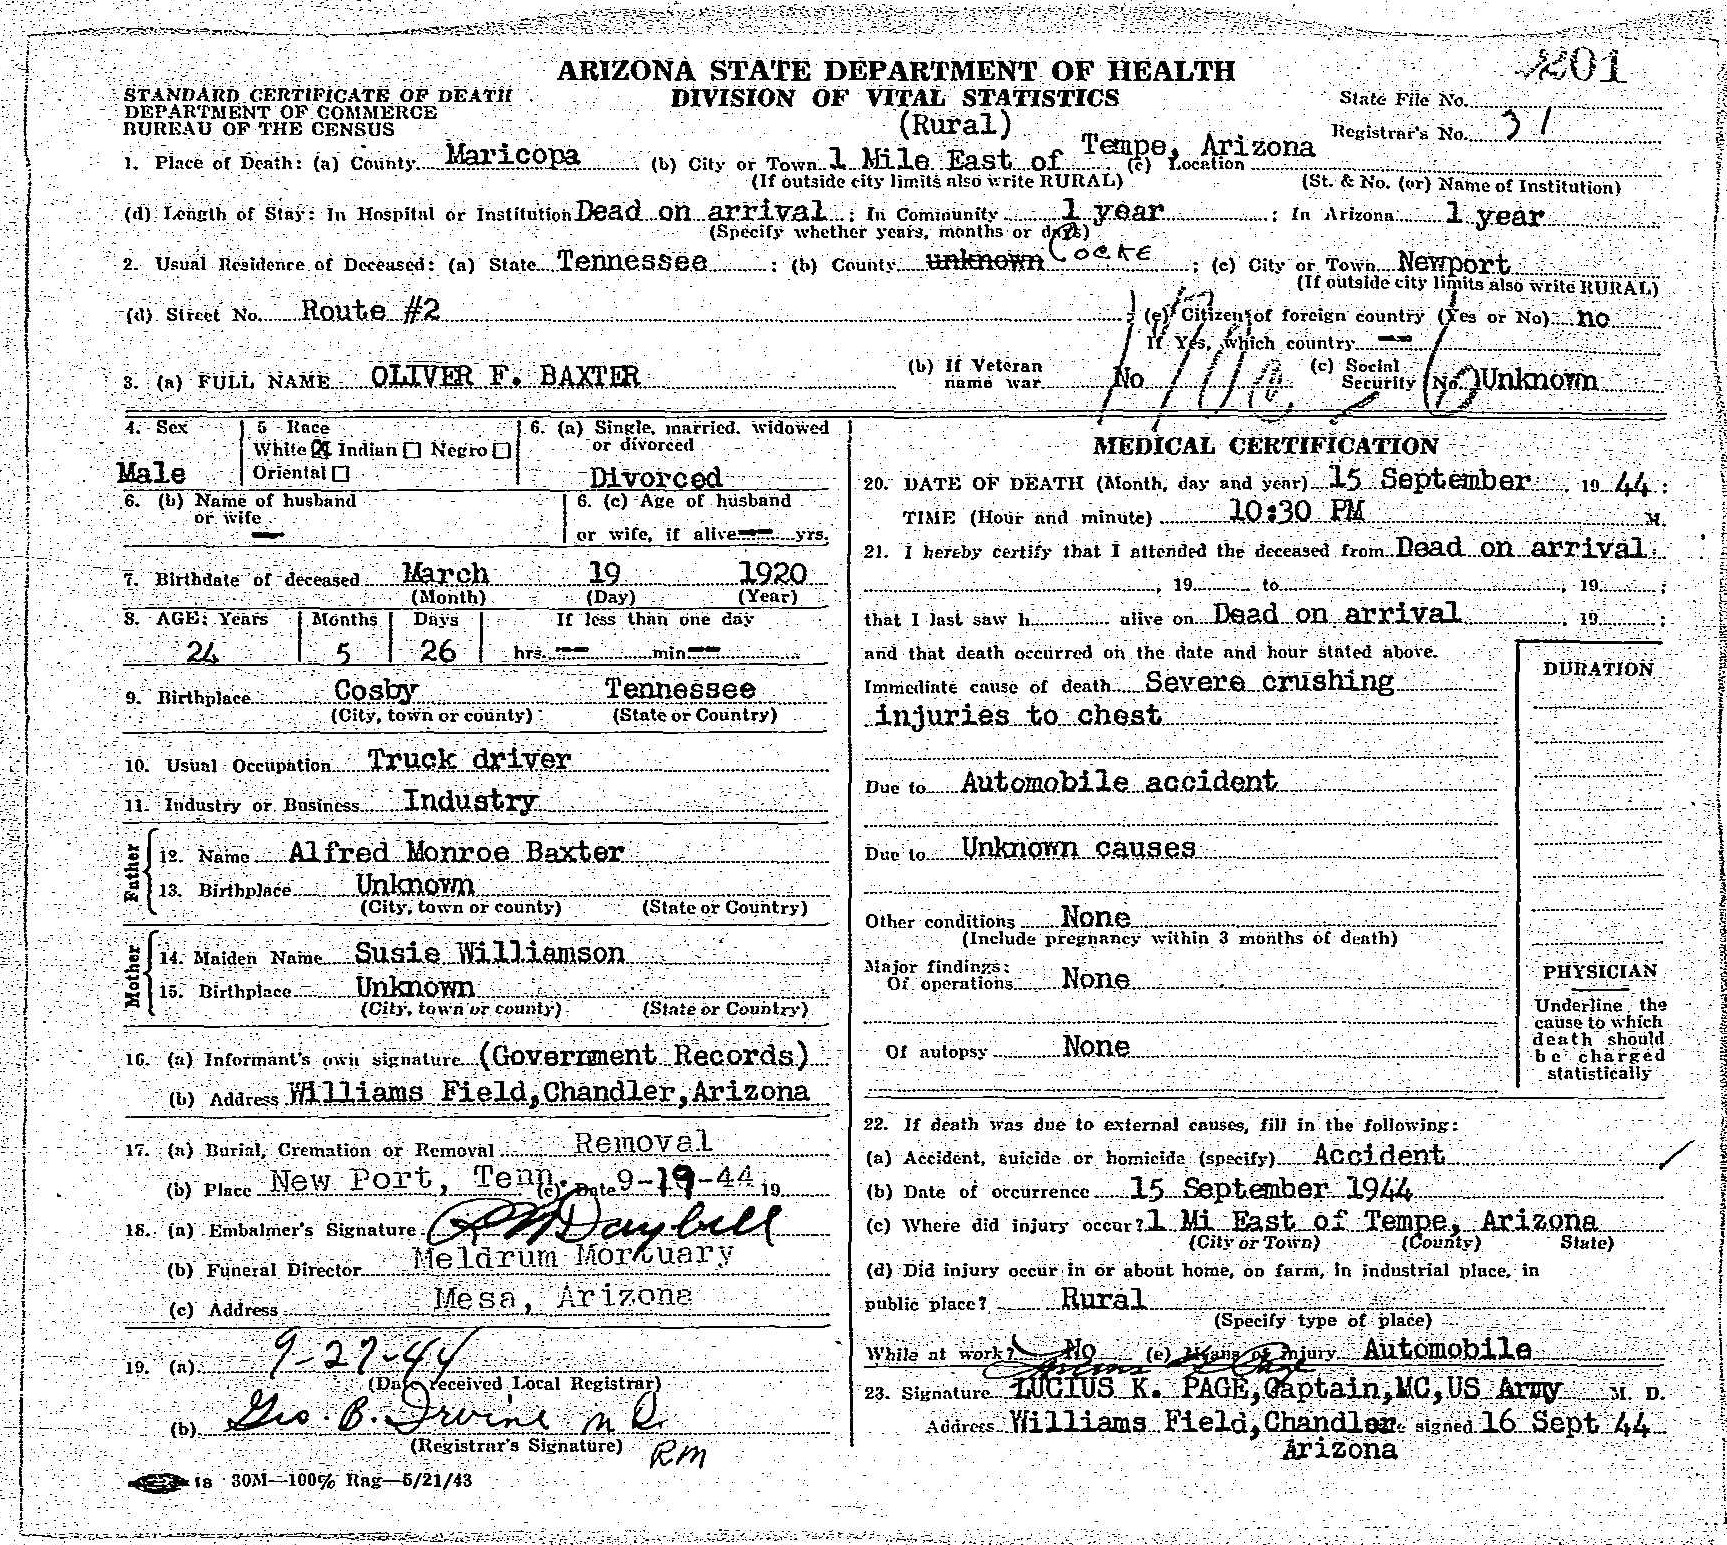 201
ARIZONA STATE DEPARTMENT OF HEALTH
DIVISION OF VITAL STATISTICS
(Rural)
STANDARD CERTIFICATE OF DEATH
DEPARTMENT OF COMMERCE
BUREAU OF THE CENSUS
State File No.
Registrar's No. 31
1. Place of Death: (a) County Maricopa (b) City or Town 1 Mile East of Tempe, Arizona (c) Location
(If outside city limits also write RURAL) (St. & No. (or) Name of Institution)
(d) Length of Stay: In Hospital or Institution Dead on arrival ; In Community 1 year ; In Arizona 1 year
(Specify whether years, months or days)
2. Usual Residence of Deceased: (a) State Tennessee ; (b) County unknown Cocke ; (c) City or Town Newport
(If outside city limits also write RURAL)
(d) Street No. Route #2 ; (e) Citizen of foreign country (Yes or No) no
If Yes, which country --
3. (a) FULL NAME OLIVER F. BAXTER (b) If Veteran name war No (c) Social Security No. Unknown
4. Sex Male
5 Race
White [X] Indian [ ] Negro [ ]
Oriental [ ]
6. (a) Single, married, widowed
or divorced
Divorced
6. (b) Name of husband
or wife —
6. (c) Age of husband
or wife, if alive -- yrs.
7. Birthdate of deceased March 19 1920
(Month) (Day) (Year)
8. AGE: Years Months Days If less than one day
24 5 26 hrs. -- min --
9. Birthplace Cosby Tennessee
(City, town or county) (State or Country)
10. Usual Occupation Truck driver
11. Industry or Business Industry
Father
12. Name Alfred Monroe Baxter
13. Birthplace Unknown
(City, town or county) (State or Country)
Mother
14. Maiden Name Susie Williamson
15. Birthplace Unknown
(City, town or county) (State or Country)
16. (a) Informant's own signature (Government Records)
(b) Address Williams Field,Chandler,Arizona
17. (a) Burial, Cremation or Removal Removal
(b) Place New Port, Tenn. (c) Date 9-19-44 19
18. (a) Embalmer's Signature Daybell
(b) Funeral Director Meldrum Mortuary
(c) Address Mesa, Arizona
19. (a) 9-27-44
(Date received Local Registrar)
(b) Geo. B. Irvine M D.
(Registrar's Signature) RM
18 30M—100% Rag—5/21/43
MEDICAL CERTIFICATION
20. DATE OF DEATH (Month, day and year) 15 September , 19 44 ;
TIME (Hour and minute) 10:30 PM M.
21. I hereby certify that I attended the deceased from Dead on arrival
, 19 to , 19 ;
that I last saw h alive on Dead on arrival , 19 ;
and that death occurred on the date and hour stated above.
Immediate cause of death Severe crushing
injuries to chest
Due to Automobile accident
Due to Unknown causes
Other conditions None
(Include pregnancy within 3 months of death)
Major findings:
Of operations None
Of autopsy None
DURATION
PHYSICIAN
Underline the
cause to which
death should
be charged
statistically
22. If death was due to external causes, fill in the following:
(a) Accident, suicide or homicide (specify) Accident
(b) Date of occurrence 15 September 1944
(c) Where did injury occur? 1 Mi East of Tempe, Arizona
(City or Town) (County) State)
(d) Did injury occur in or about home, on farm, in industrial place, in
public place? Rural
(Specify type of place)
While at work? No (e) Means of Injury Automobile
23. Signature LUCIUS K. PAGE,Captain,MC,US Army M. D.
Address Williams Field,Chandler signed 16 Sept 44
Arizona